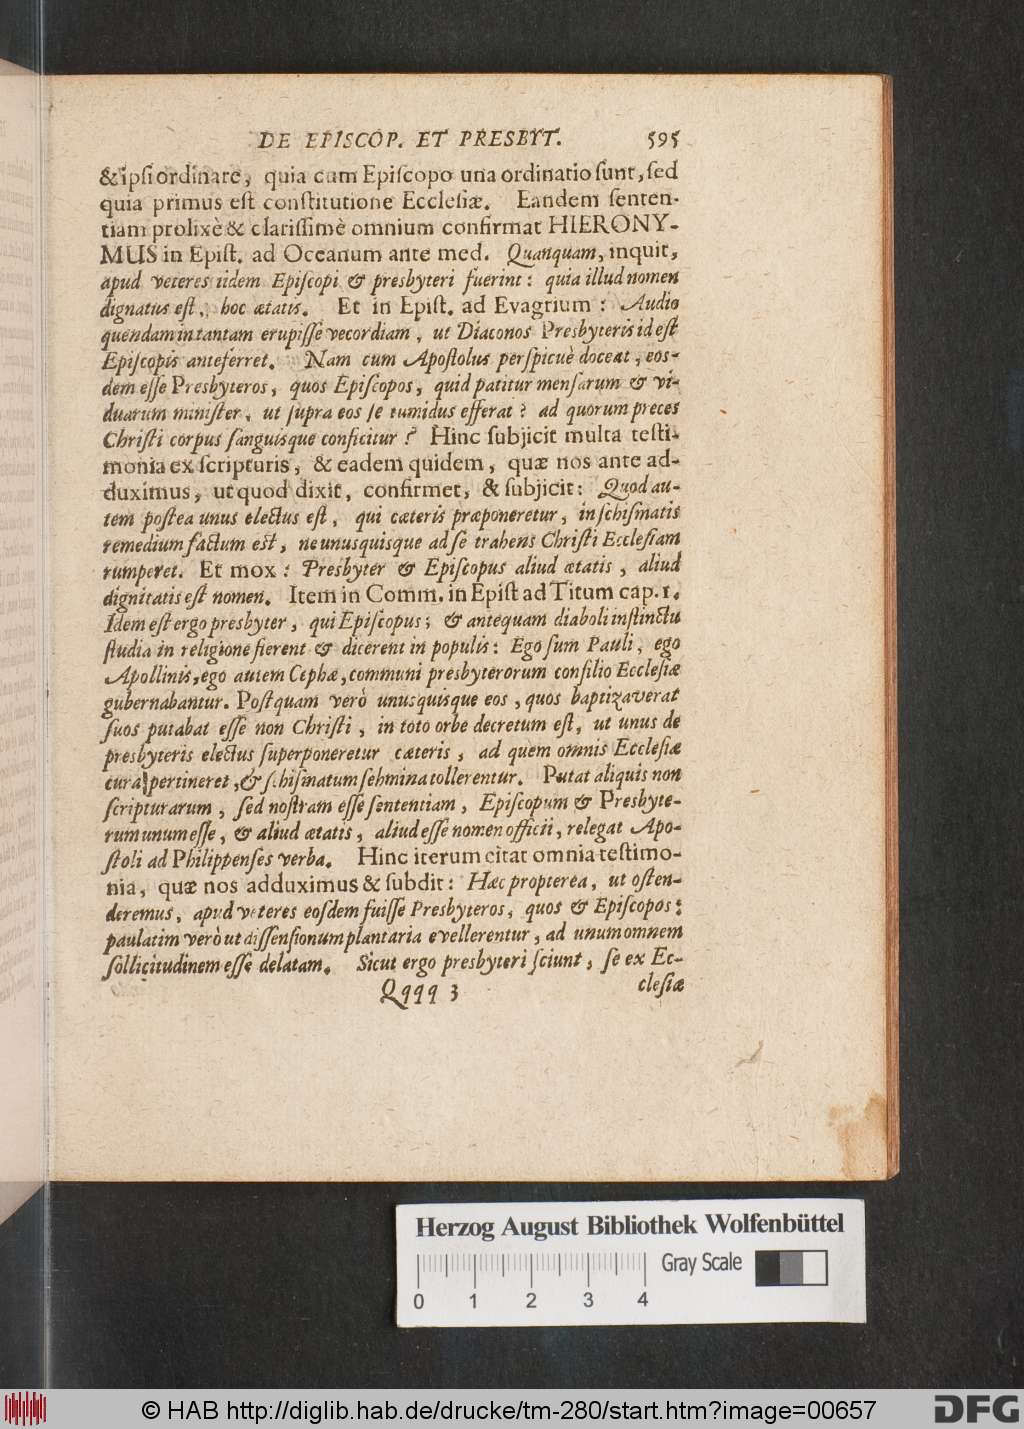 DE EPISCOP. ET PRESBYT. 595
& ipsi ordinare, quia cum Episcopo una ordinatio sunt, sed
quia primus est constitutione Ecclesiæ. Eandem senten-
tiam prolixè & clarissimè omnium confirmat HIERONY-
MUS in Epist. ad Oceanum ante med. Quanquam, inquit,
apud veteres iidem Episcopi & presbyteri fuerint: quia illud nomen
dignatus est, hoc ætatis. Et in Epist. ad Evagrium: Audio
quendam in tantam erupisse vecordiam, ut Diaconos Presbyteris id est
Episcopis anteferret. Nam cum Apostolus perspicuè doceat, eos-
dem esse Presbyteros, quos Episcopos, quid patitur mensarum & vi-
duarum minister, ut supra eos se tumidus efferat? ad quorum preces
Christi corpus sanguisque conficitur? Hinc subjicit multa testi-
monia ex scripturis, & eadem quidem, quæ nos ante ad-
duximus, ut quod dixit, confirmet, & subjicit: Quod au-
tem postea unus electus est, qui cæteris præponeretur, in schismatis
remedium factum est, ne unusquisque ad se trahens Christi Ecclesiam
rumperet. Et mox: Presbyter & Episcopus aliud ætatis, aliud
dignitatis est nomen. Item in Comm. in Epist ad Titum cap. 1.
Idem est ergo presbyter, qui Episcopus; & antequam diaboli instinctu
studia in religione fierent & dicerent in populis: Ego sum Pauli, ego
Apollinis, ego autem Cephæ, communi presbyterorum consilio Ecclesiæ
gubernabantur. Postquam verò unusquisque eos, quos baptizaverat
suos putabat esse non Christi, in toto orbe decretum est, ut unus de
presbyteris electus superponeretur cæteris, ad quem omnis Ecclesiæ
cura pertineret, & schismatum sehmina tollerentur. Putat aliquis non
scripturarum, sed nostram esse sententiam, Episcopum & Presbyte-
rum unum esse, & aliud ætatis, aliud esse nomen officii, relegat Apo-
stoli ad Philippenses verba. Hinc iterum citat omnia testimo-
nia, quæ nos adduximus & subdit: Hæc propterea, ut osten-
deremus, apud veteres eosdem fuisse Presbyteros, quos & Episcopos:
paulatim verò ut dissensionum plantaria evellerentur, ad unum omnem
sollicitudinem esse delatam. Sicut ergo presbyteri sciunt, se ex Ec-
Qqqq 3 clesiæ
Herzog August Bibliothek Wolfenbüttel
Gray Scale
0 1 2 3 4
© HAB http://diglib.hab.de/drucke/tm-280/start.htm?image=00657
DFG